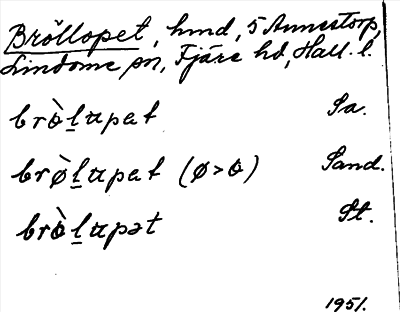 Bröllopet, hmd, 5 Annestorp,
Lindome sn, Fjäre hd, Hall. l.
brö̀l̲upat Sa.
brø̀l̲upat (ø>ö) Sand.
brö̀l̲upət St.
1951.